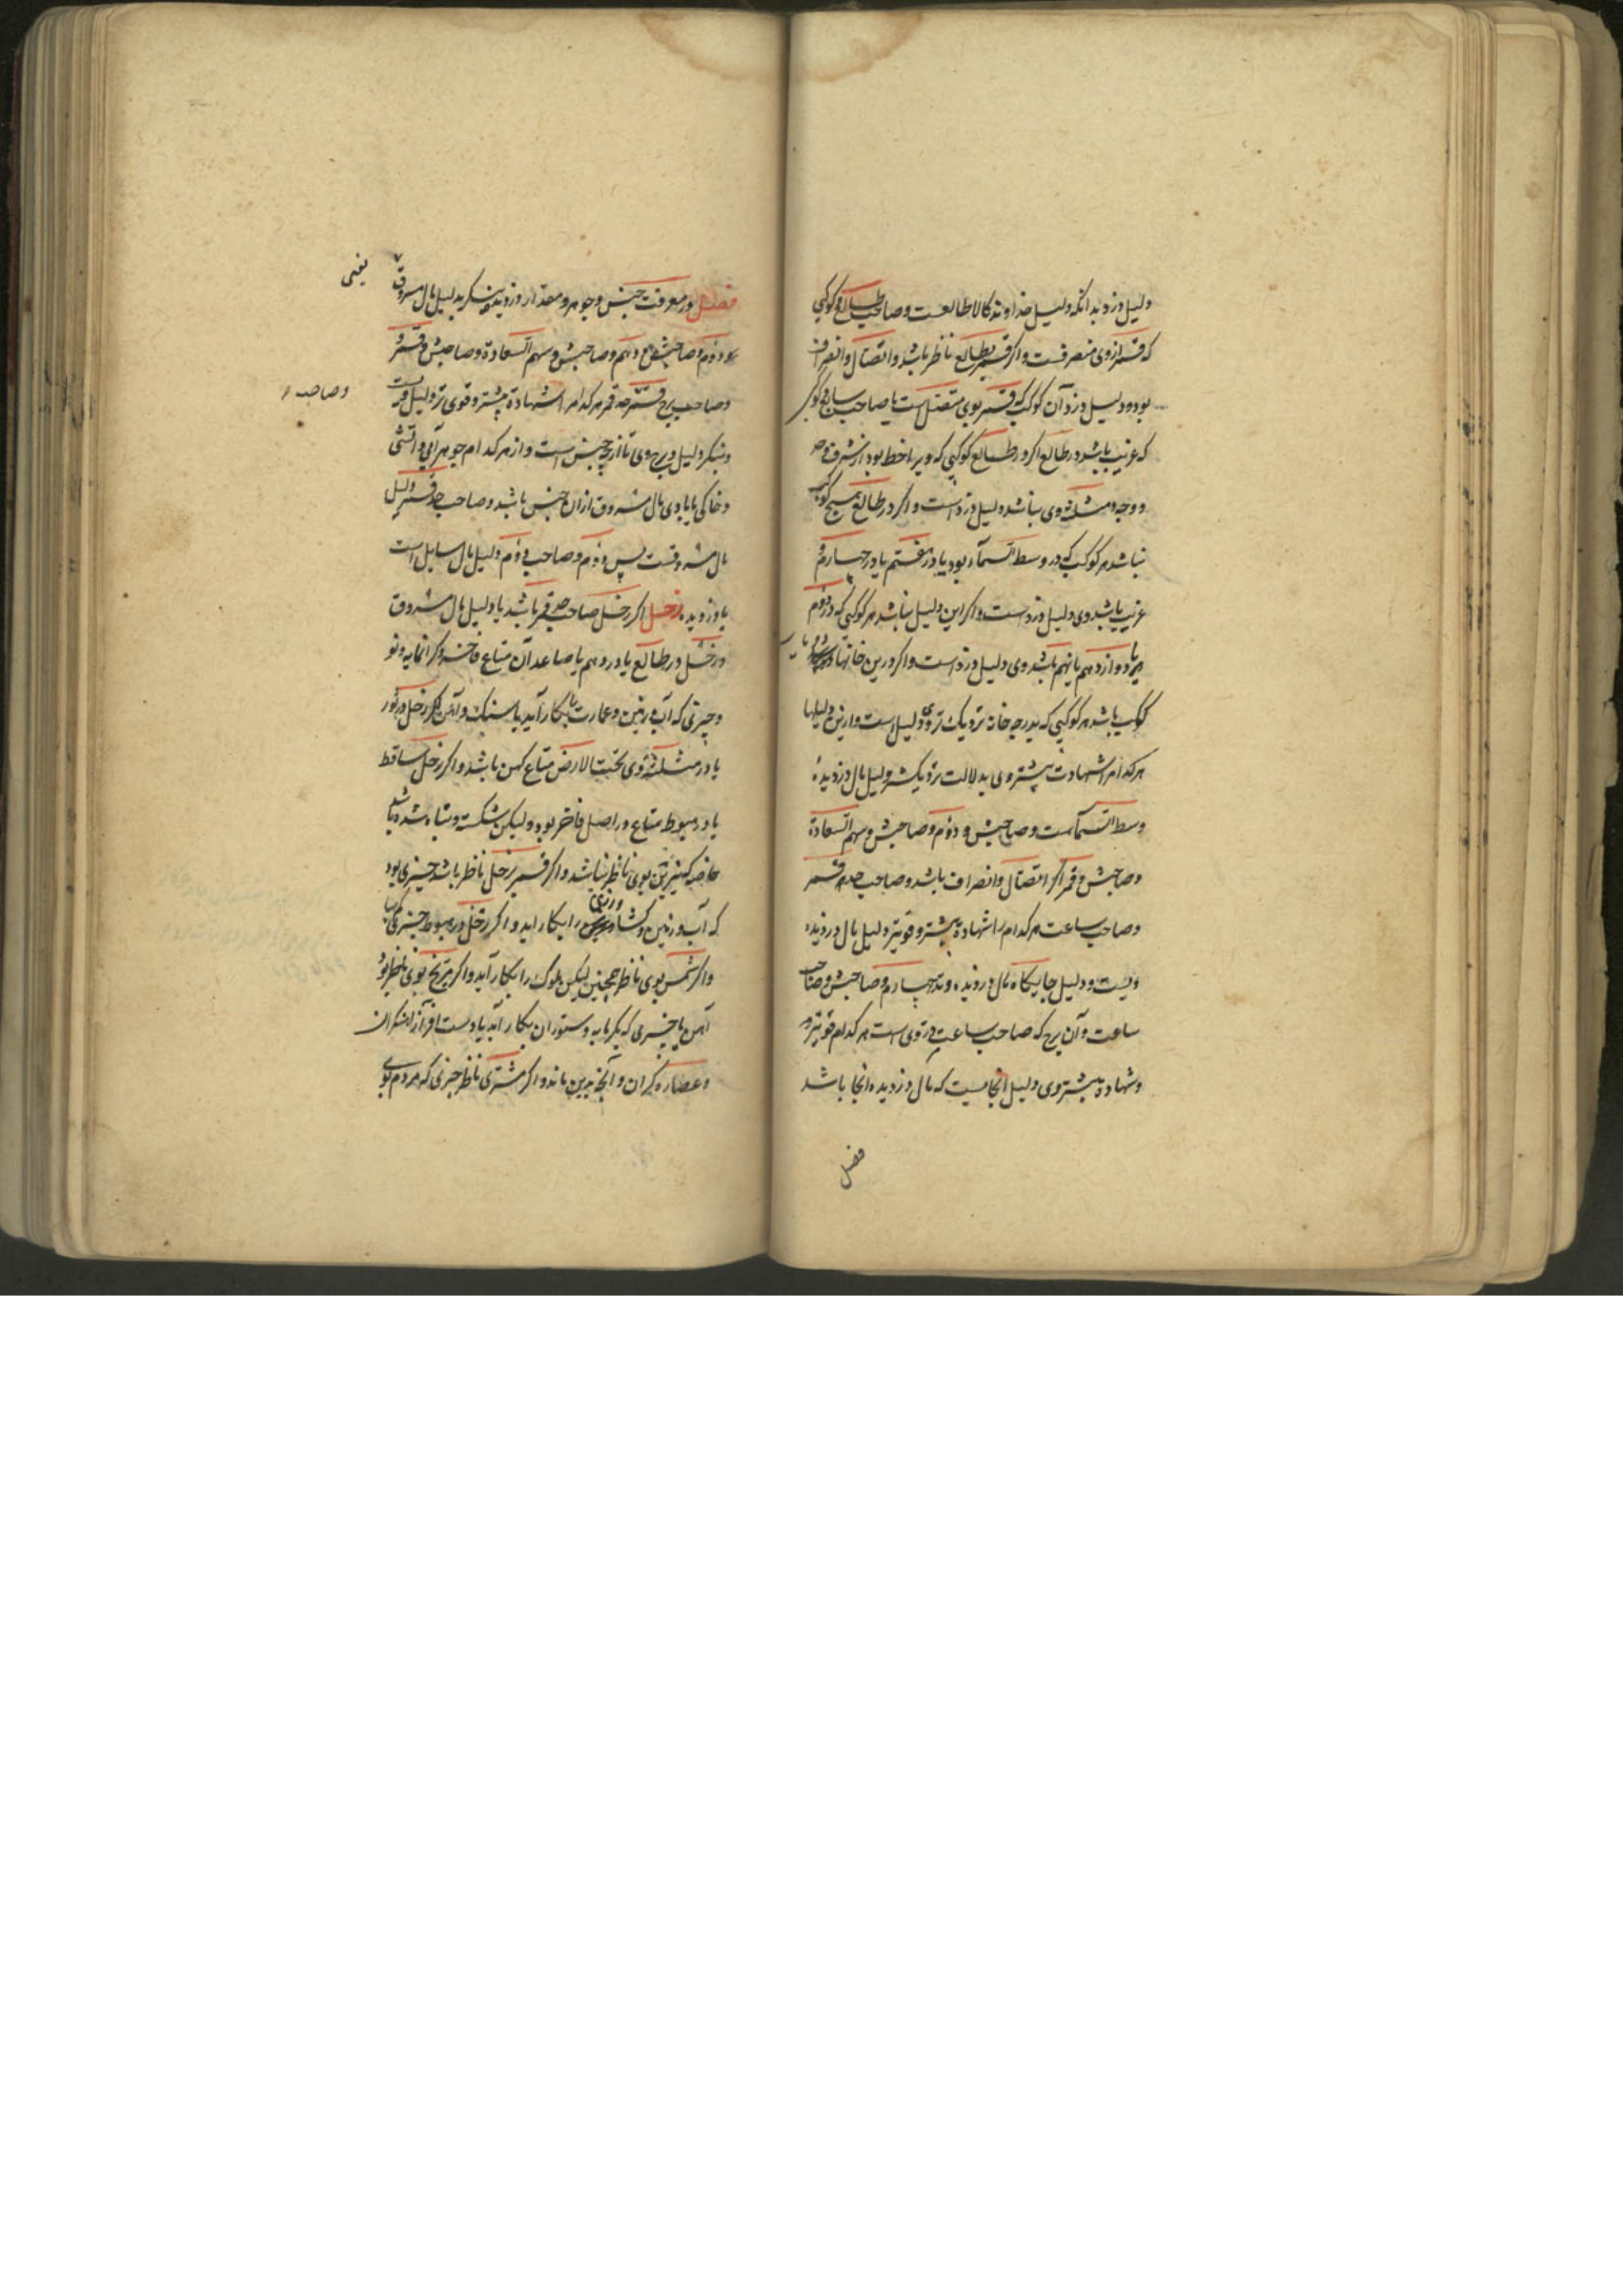 دلیل دزد بدانکه دلیل خداوند کالا طالعست و صاحب طالع و کوکبی
که قمر ازوی منصرفست و اگر قمر بطالع ناظر باشد و اتصال و انصراف
بود و دلیل دزد آن کوکب که قمر بوی متصل است یا صاحب سابع و کوکبی
که غریب باشد در طالع اگر در طالع کوکبی که ویرا خط بود از شرف و حد
و وجه و مثلثه وی نباشد دلیل دزد است و اگر در طالع هیچ کوکب
نباشد هر کوکب که در وسط السماء بود یا در هفتم یا در چهارم و
غریب باشد وی دلیل دزدست و اگر این دلیل نباشد هر کوکبی که در دوم
یا دوازدهم یا نهم باشد وی دلیل دزد است و اگر درین خانها
کوکب باشد هر کوکبی که بدرجه خانه نزدیک تر وی دلیل است و ازین دلیلها
هر کدام را شهادت بیشتر وی بدلالت نزدیکتر دلیل مال دزدیده
وسط السماست و صاحبش و دوم و صاحبش و سهم السعادة
و صاحبش و قمر اگر اتصال و انصراف باشد و صاحب حد قمر
و صاحب ساعت هر کدام را شهادة بیشتر و قویتر دلیل مال دزدیده
ویست و دلیل جایگاه مال دزدیده وتد چهارم و صاحبش و صاحب
ساعت و آن برج که صاحب ساعت در وی است هر کدام قویتر و
شهادة بیشتر وی دلیل آنجاییست که مال دزدیده آنجا باشد
فصل
فصل در معرفت جنس و جوهر و مقدار دزدیده بنگر بدلیل مال مسروق
یعنی
دوم و صاحبش و دهم و صاحبش و سهم السعادة و صاحبش و قمر و
و صاحب برج قمر و حد قمر هر کدام را شهادة بیشتر و قوی تر دلیل ویست
و صاحب
و بنگر دلیل و برج وی تا از چه جنس است و از هر کدام جوهر آبی و آتشی
و خاکی یا بادی مال مسروق از آن جنس باشد و صاحب حد قمر دلیل
مال مسروقست پس دوم و صاحب دوم دلیل مال سایل است
یا دزدیده زحل اگر زحل صاحب حد قمر باشد یا دلیل مال مسروق
و زحل در طالع یا در دهم یا صاعد آن متاع فاخر و گرانمایه و نو
و چیزی که آب و زمین و عمارت را بکار آید یا سنگ و آهن و اگر زحل در ثور
یا در مثلثه وی تحت الارض متاع کهن باشد و اگر زحل ساقط
یا در هبوط متاع در اصل فاخر بود ولیکن شکسته و تباه شده باشد
خاصه که نیرین بوی ناظر نباشد و اگر قمر بزحل ناظر باشد چیزی بود
که آب و زمین و کشاورزی را بکار آید و اگر زحل در هبوط چیزی
و اگر شمس بوی ناظر همچنین لیکن ملوک را بکار آید و اگر مریخ بوی ناظر بود
آهن یا چیزی که بگرمابه و ستوران بکار آید یا دست افزار آهنگران
و عصاره گران و آنچه بدین ماند و اگر مشتری ناظر چیزی که مردم بوی